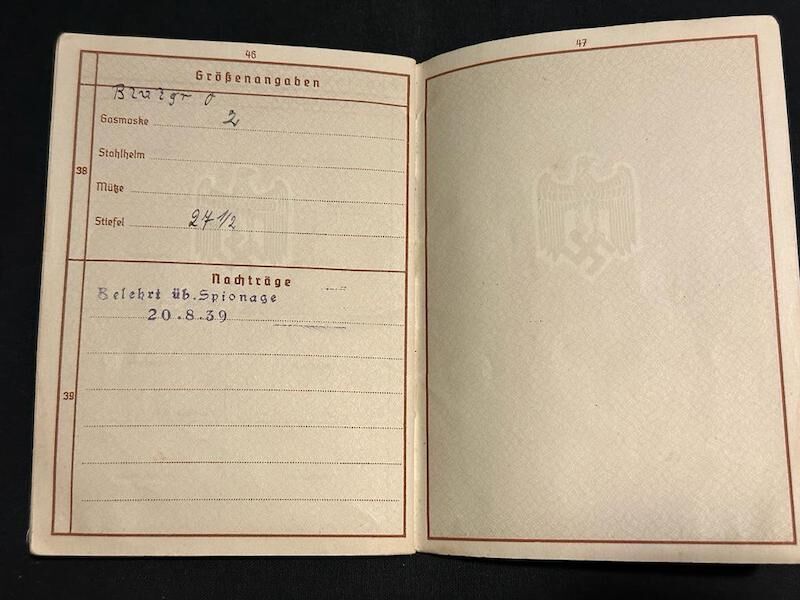 46
Größenangaben
Blutgr O
Gasmaske 2
Stahlheim
38
Mütze
Stiefel 27 1/2
Nachträge
Belehrt üb.Spionage
20.8.39
39
47